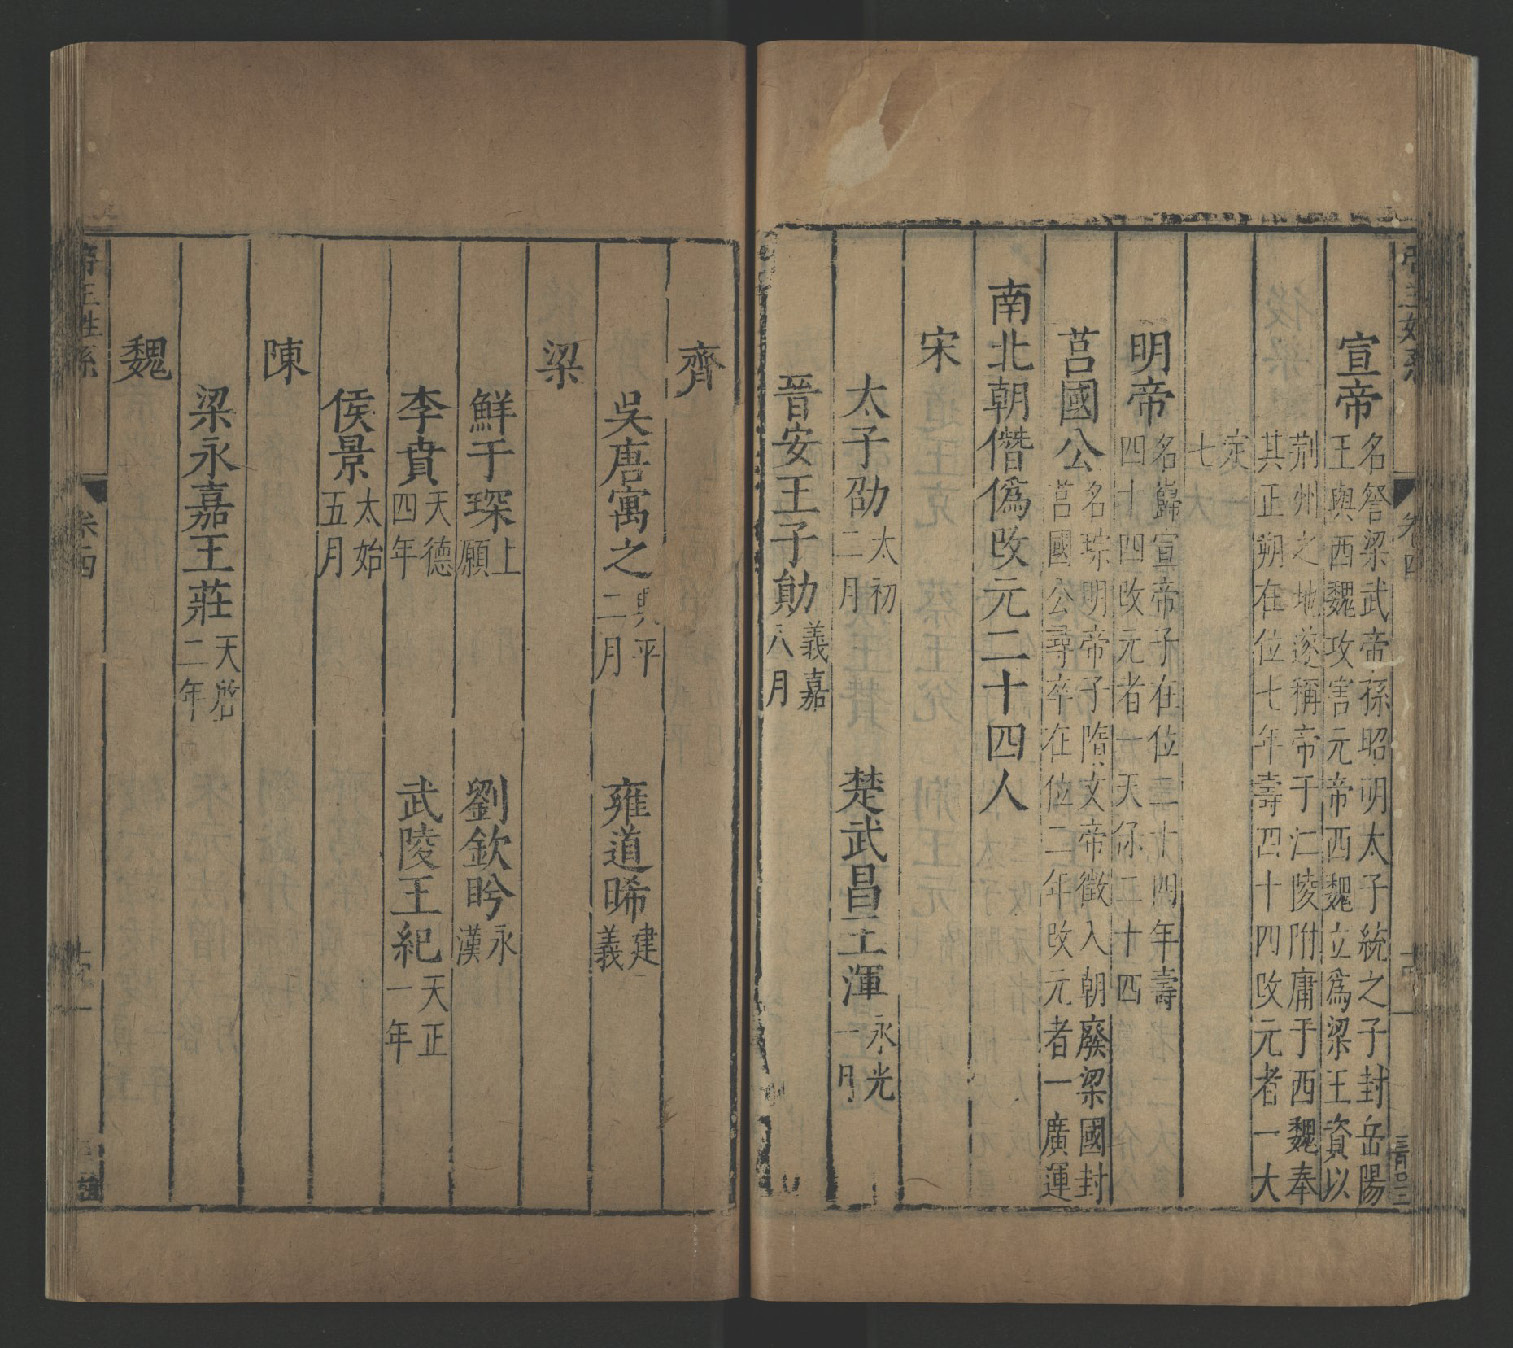 宣帝 名詧梁武帝孫昭明太子統之子封岳陽
王與西魏攻害元帝西魏立爲梁王資以
荊州之地遂稱帝于江陵附庸于西魏奉
其正朔在位七年壽四十四改元者一大
定
七
明帝 名巋宣帝子在位二十四年壽
四十四改元者一天保二十四
莒國公 名琮明帝子隋文帝徵入朝廢梁國封
莒國公尋卒在位二年改元者一廣運
南北朝僭僞改元二十四人
宋
太子劭 太初二月 楚武昌王渾 永光一月
晉安王子勛 義嘉八月
齊
吳唐寓之 興平二月 雍道晞 建義
梁
鮮于琛 上願 劉欽盻 永漢
李賁 天德四年 武陵王紀 天正一年
侯景 太始五月
陳
梁永嘉王莊 天啓二年
魏
帝王姓系 卷四